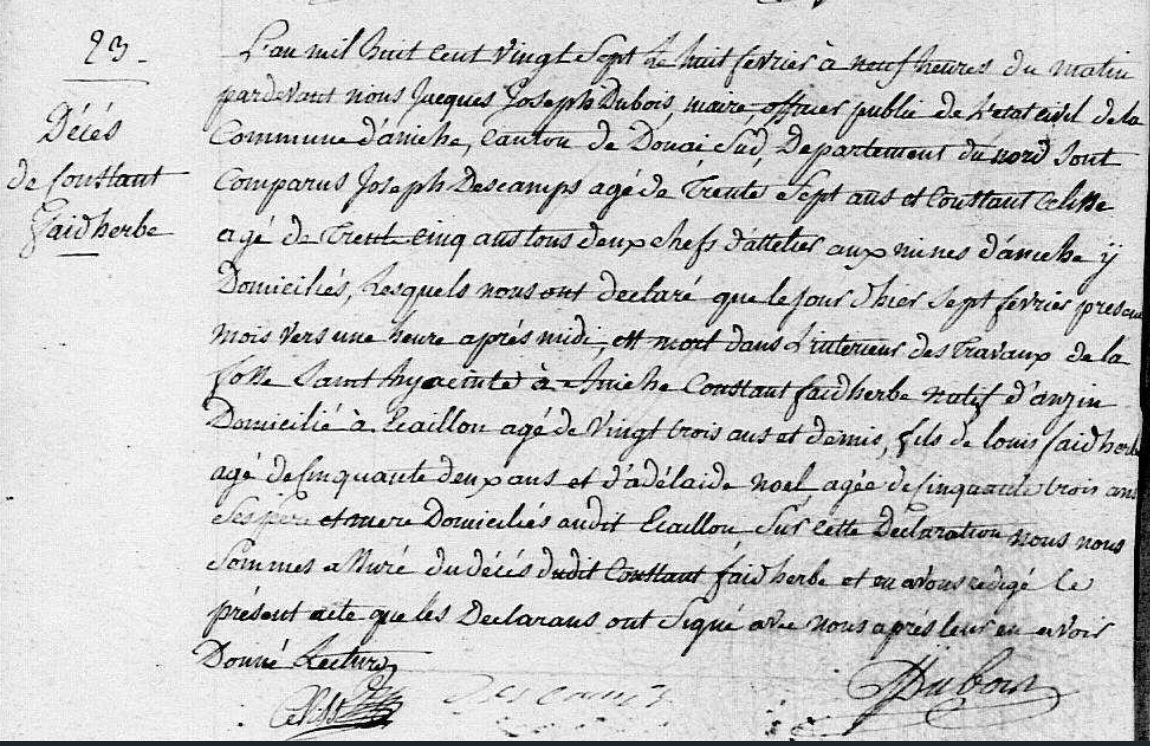 23.
Décés
de Constant
faidherbe
L'an mil huit cent vingt sept Le huit fevrier à neuf heures du matin
pardevant nous Jacques Joseph Dubois, maire, officier public de L'etat civil de la
Commune d'aniche, canton de Douai Sud, Departement du nord sont
Comparus Joseph Descamps agé de Trente Sept ans et Constant Celisse
agé de Trente cinq ans tous deux chefs d'attelier aux mines d'aniche ÿ
Domiciliés, Lesquels nous ont declaré que le jour d'hier Sept fevrier present
mois vers une heure aprés midi, est mort dans L'interieur des Travaux de la
fosse Saint hyacinte à Aniche Constant faidherbe natif d'anzin
Domicilié à Ecaillon agé de Vingt trois ans et demis, fils de louis faidherbe
agé de Cinquante deux ans et d'adélaide noel, agée de Cinquante trois ans
Ses pere et mere Domiciliés audit Ecaillon Sur cette Declaration nous nous
Sommes assuré du décés dudit Constant faidherbe et en avons redigé le
présent acte que les Declarans ont Signé avec nous aprés leur en avoir
Donné Lecture
Celisse Descamps JJDubois